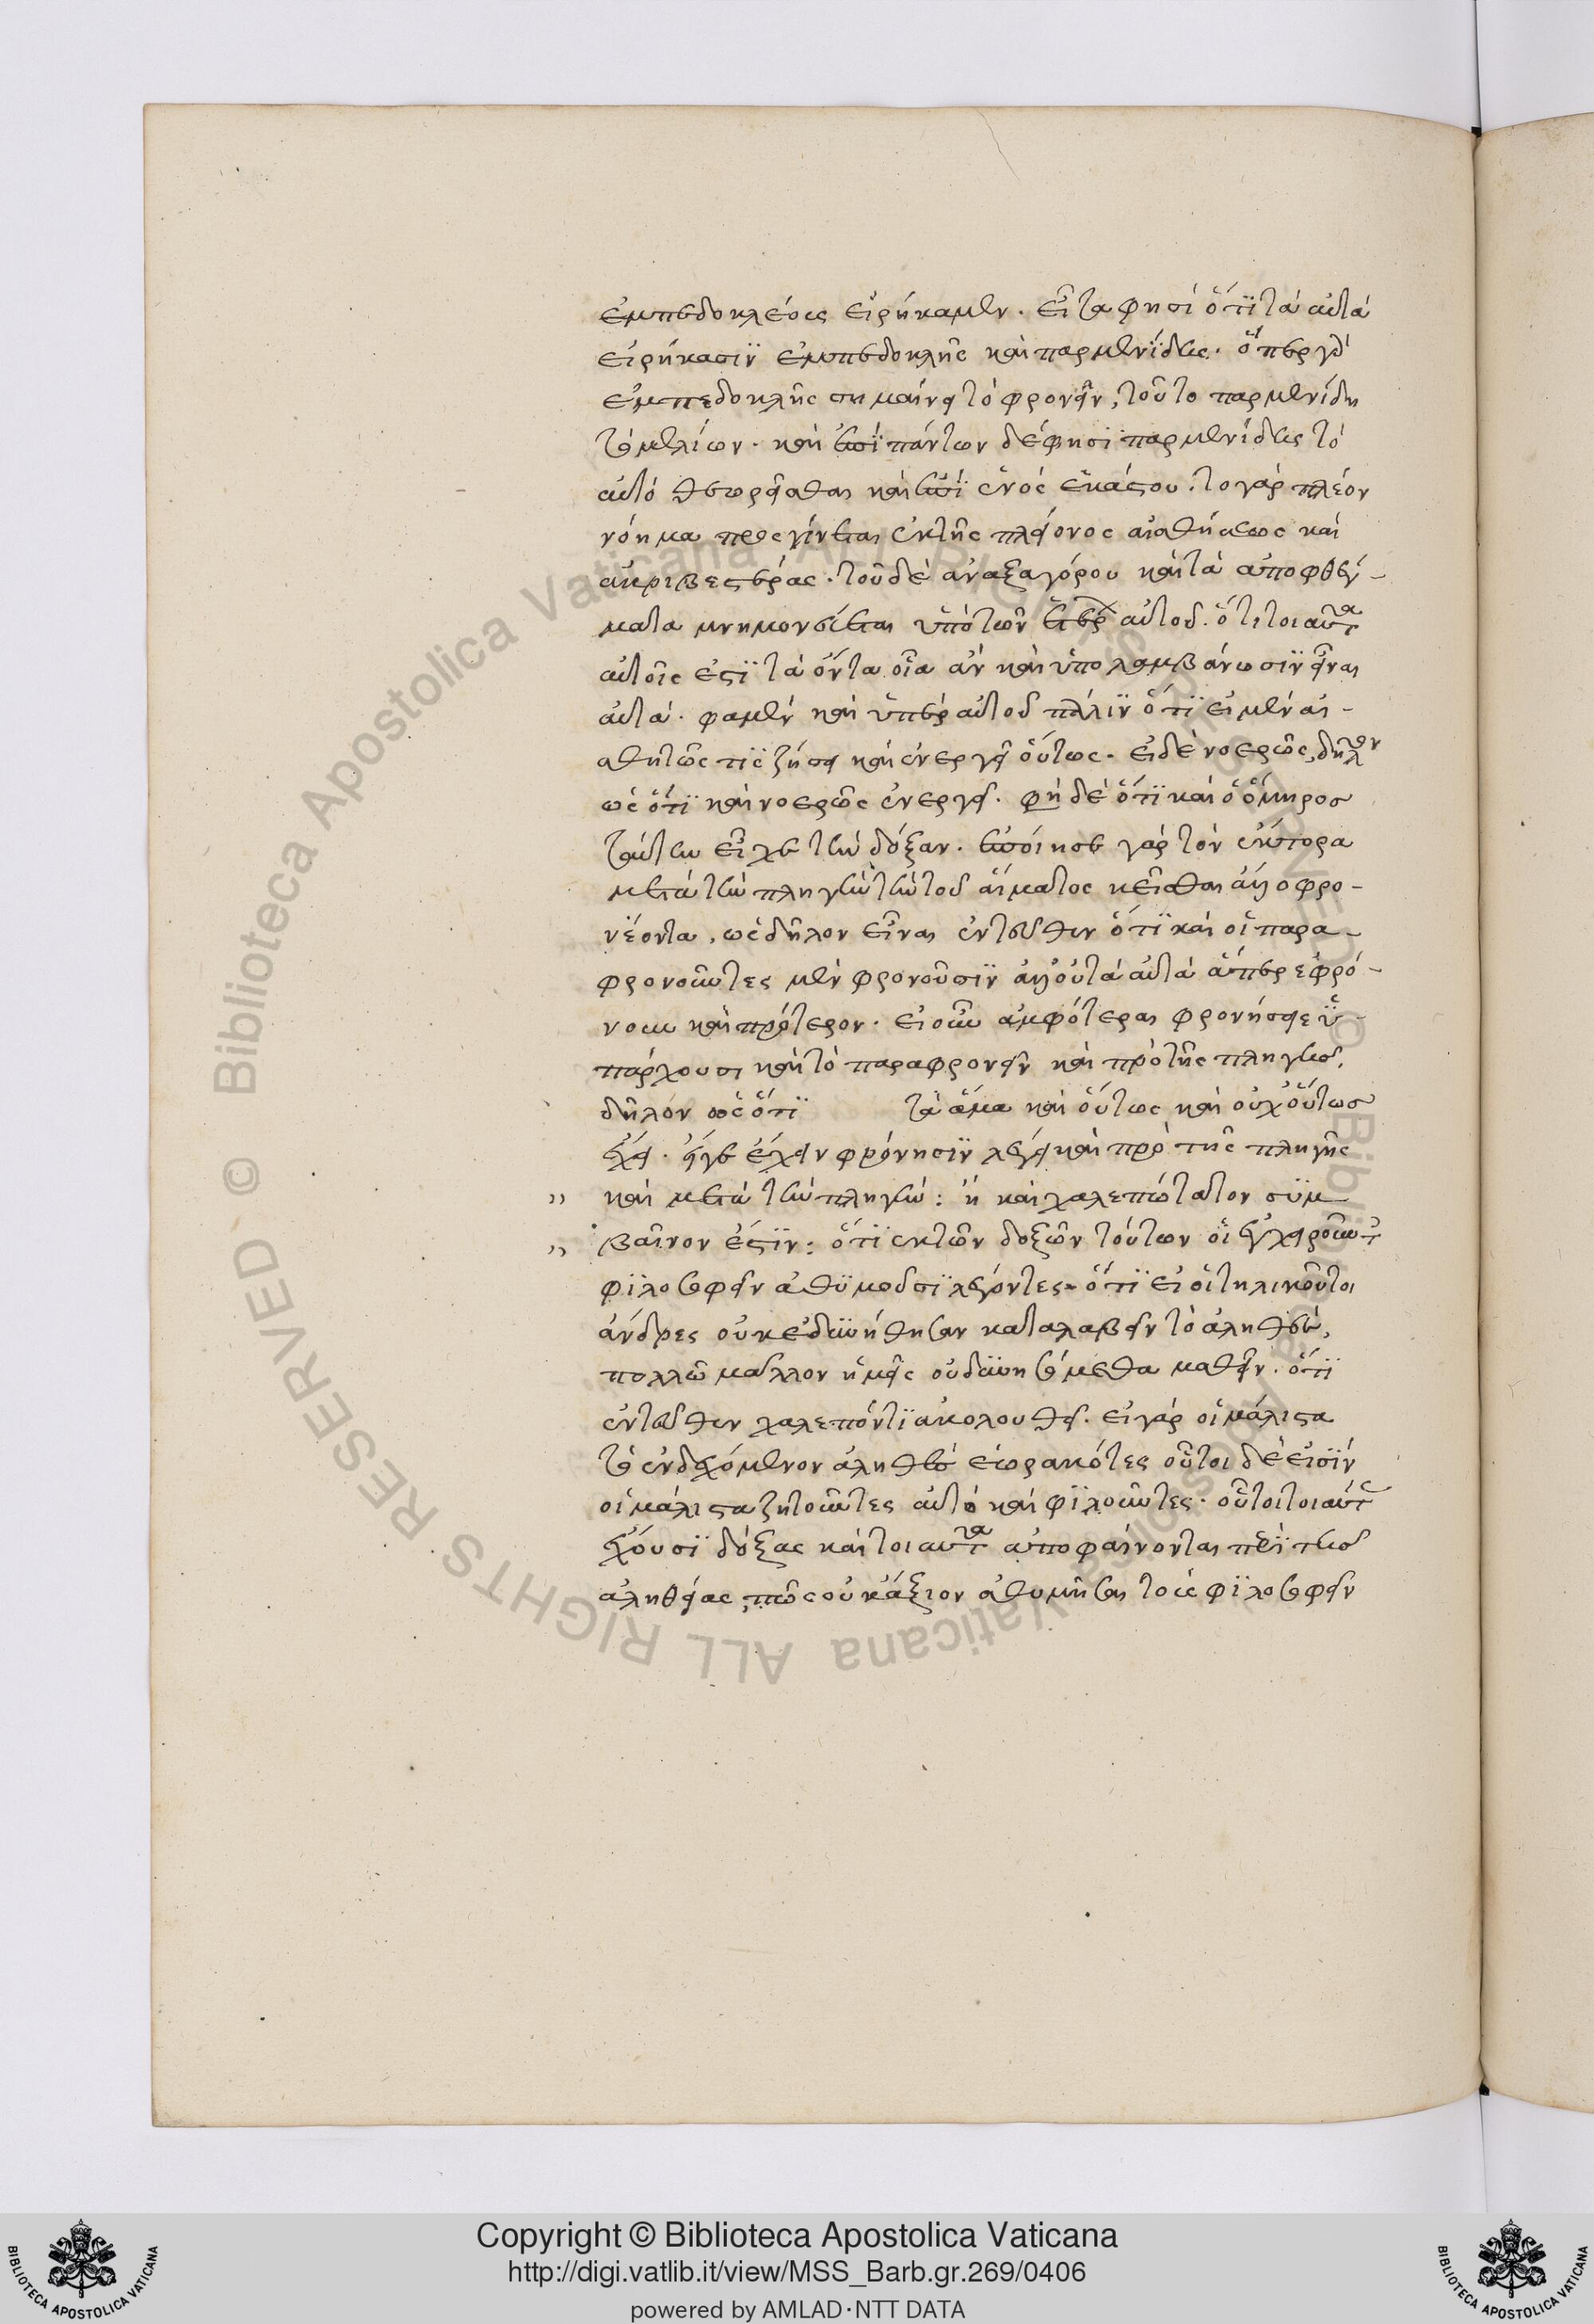 ἐμπεδοκλέους εἰρήκαμεν. εἶτα φησὶ ὅτι τὰ αὐτὰ
εἰρήκασιν ἐμπεδοκλῆς καὶ παρμενίδης. ὅπερ γὰρ
ἐμπεδοκλῆς σημαίνει τὸ φρονεῖν, τοῦτο παρμενίδη
τὸ μελέων. καὶ ἐπὶ πάντων δέ φησι παρμενίδης τὸ
αὐτὸ θεωρεῖσθαι καὶ ἐπὶ ἑνὸς ἑκάστου. το γὰρ πλέον
νόημα προσγίνεται ἐκ τῆς πλείονος αἰσθήσεως καὶ
ἀκριβεστέρας. τοῦ δὲ ἀναξαγόρου καὶ τὰ ἀποφθέγ-
ματα μνημονεύεται ὑπὸ τῶν αὐτοῦ. ὅτι τοιαῦτα
αὐτοῖς ἐστὶ τὰ ὄντα οἷα ἂν καὶ ὑπολαμβάνωσιν εἶναι
αὐτά. φαμὲν καὶ ὑπὲρ αὐτοῦ πάλιν ὅτι εἰ μὲν αἰ-
σθητῶς τις ζήσει καὶ ἐνεργεῖ οὕτως. εἰ δὲ νοερῶς, δῆλον
ὡς ὅτι καὶ νοερῶς ἐνεργεῖ. φὴ δὲ ὅτι καὶ ὁ ὅμηρος
ταύτην εἶχε τὴν δόξαν. ἐποίησε γὰρ τὸν ἕκτορα
μετὰ τὴν πληγὴν τὴν τοῦ αἵματος κεῖσθαι ἀλλοφρο-
νέοντα, ὡς δῆλον εἶναι ἐντεῦθεν ὅτι καὶ οἱ παρα-
φρονοῦντες μὲν φρονοῦσιν ἀλλ' οὐ τὰ αὐτὰ ἅπερ ἐφρό-
νουν καὶ πρότερον. εἰ οὖν ἀμφότεραι φρονήσεις ὑ-
πάρχουσι καὶ τὸ παραφρονεῖν καὶ πρὸ τῆς πληγῆς,
δῆλον ὡς ὅτι τὰ ἅμα καὶ οὕτως καὶ οὐχ οὕτως
ἔχει. εἴγε ἔχειν φρόνησιν λέγει καὶ πρὸ τῆς πληγῆς
καὶ μετὰ τὴν πληγήν: ἡ καὶ χαλεπώτατον συμ-
βαῖνον ἐστιν: ὅτι ἐκ τῶν δοξῶν τούτων οἱ ἐγχειροῦντες
φιλοσοφεῖν ἀθυμοῦσι λέγοντες. ὅτι εἰ οἱ τηλικοῦτοι
ἄνδρες οὐκ ἐδυνήθησαν καταλαβεῖν τὸ ἀληθές,
πολλῶ μᾶλλον ἡμεῖς οὐ δυνησόμεθα μαθεῖν. ὅτι
ἐντεῦθεν χαλεπόν τι ἀκολουθεῖ. εἰ γὰρ οἱ μάλιστα
τὸ ἐνδεχόμενον ἀληθὲς ἑωρακότες οὗτοι δὲ εἰσὶν
οἱ μάλιστα ζητοῦντες αὐτὸ καὶ φιλοῦντες. οὗτοι τοιαύτας
ἔχουσι δόξας καὶ τοιαῦτα ἀποφαίνονται περὶ τῆς
ἀληθείας, πῶς οὐκ ἄξιον ἀθυμῆσαι τοὺς φιλοσοφεῖν
Copyright © Biblioteca Apostolica Vaticana
http://digi.vatlib.it/view/MSS_Barb.gr.269/0406
powered by AMLAD·NTT DATA
BIBLIOTECA APOSTOLICA VATICANA
BIBLIOTECA APOSTOLICA VATICANA
© Biblioteca Apostolica Vaticana ALL RIGHTS RESERVED